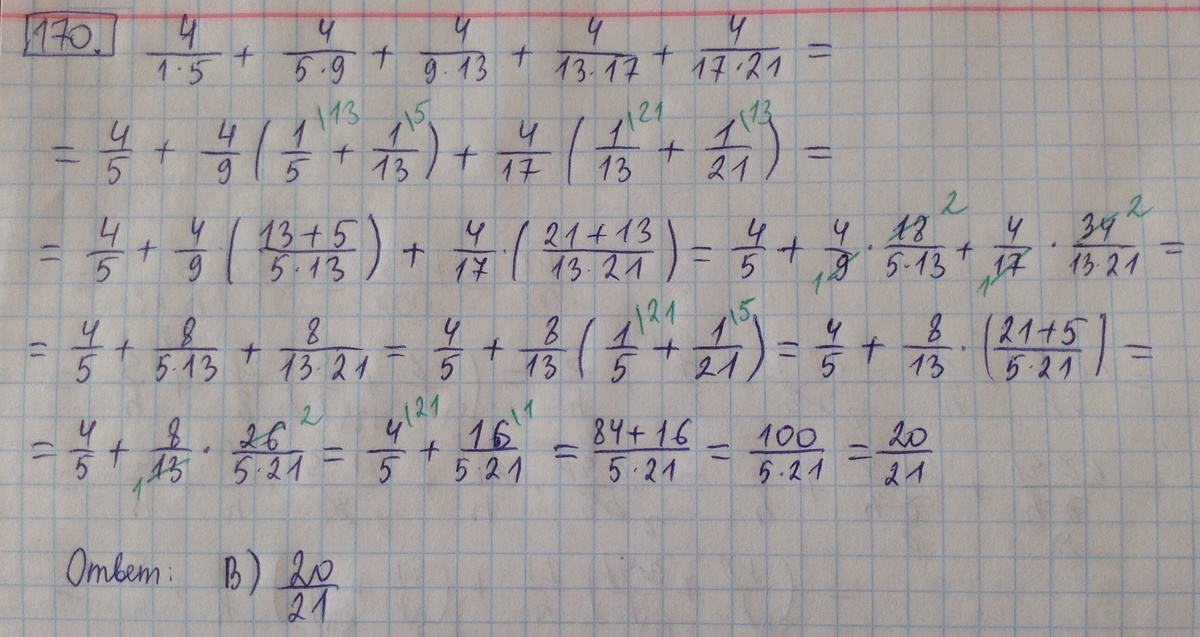 170. 4/(1·5) + 4/(5·9) + 4/(9·13) + 4/(13·17) + 4/(17·21) =
= 4/5 + 4/9 (1/5 \13 + 1/13 \5) + 4/17 (1/13 \21 + 1/21 \13) =
= 4/5 + 4/9 · ((13+5)/(5·13)) + 4/17 · ((21+13)/(13·21)) = 4/5 + 4/9 1 · 18 2/(5·13) + 4/17 1 · 34 2/(13·21) =
= 4/5 + 8/(5·13) + 8/(13·21) = 4/5 + 8/13 (1/5 \21 + 1/21 \5) = 4/5 + 8/13 · ((21+5)/(5·21)) =
= 4/5 + 8/13 1 · 26 2/(5·21) = 4/5 \21 + 16/(5·21) \1 = (84+16)/(5·21) = 100/(5·21) = 20/21
Ответ: В) 20/21